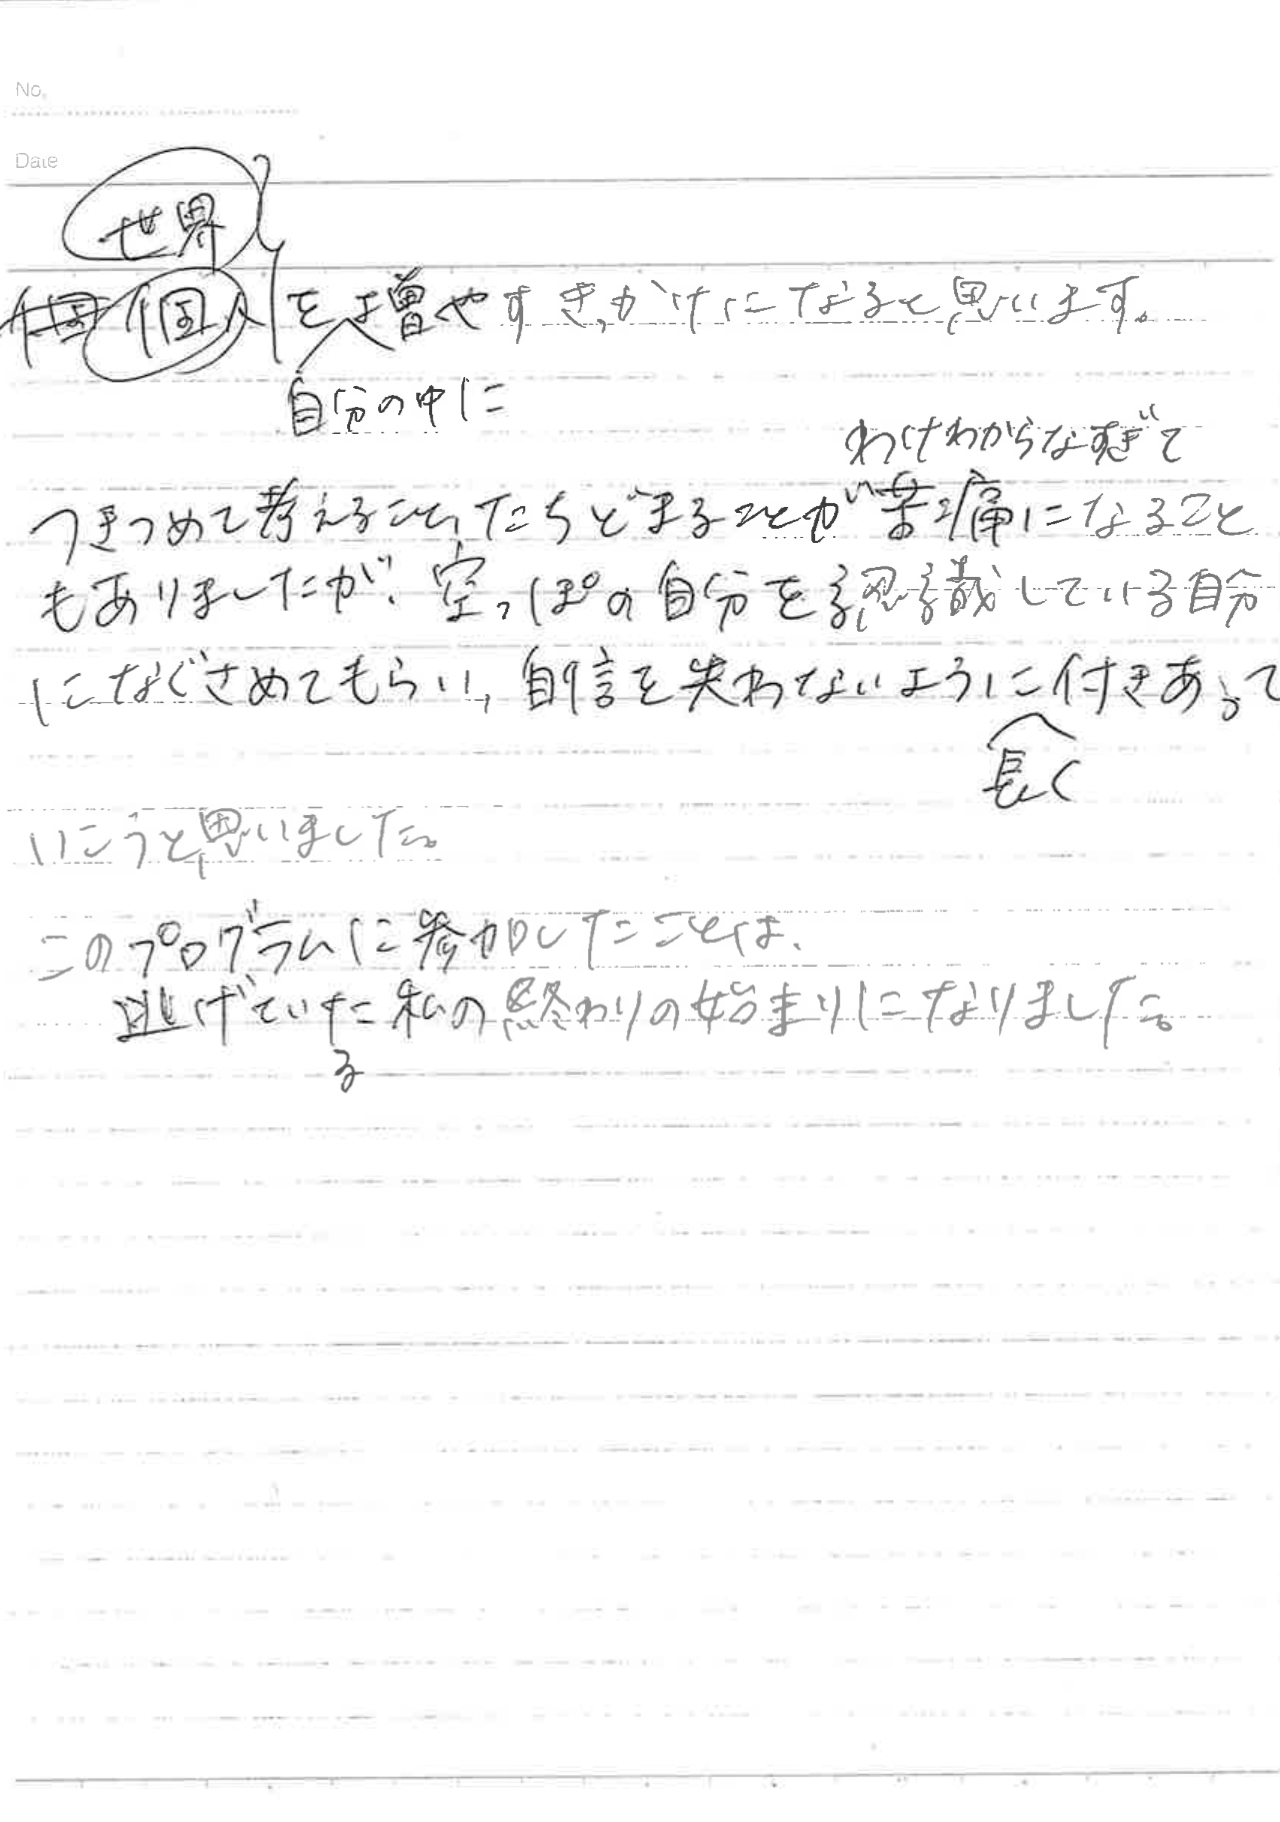 No.
Date
世界
個人を増やすきっかけになると思います。
自分の中に
わけわからなすぎて
つきつめて考えること、たちどまることが苦痛になること
もありましたが、空っぽの自分を認識している自分
になぐさめてもらい、自信を失わないように付きあって
長く
いこうと思いました。
このプログラムに参加したことは、
逃げていた私の終わりの始まりになりました。
る